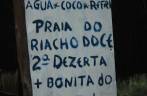 AGUA × COCO × REFRI
PRAIA DO
RIACHO DOCE
2ª DEZERTA
+ BONITA DO